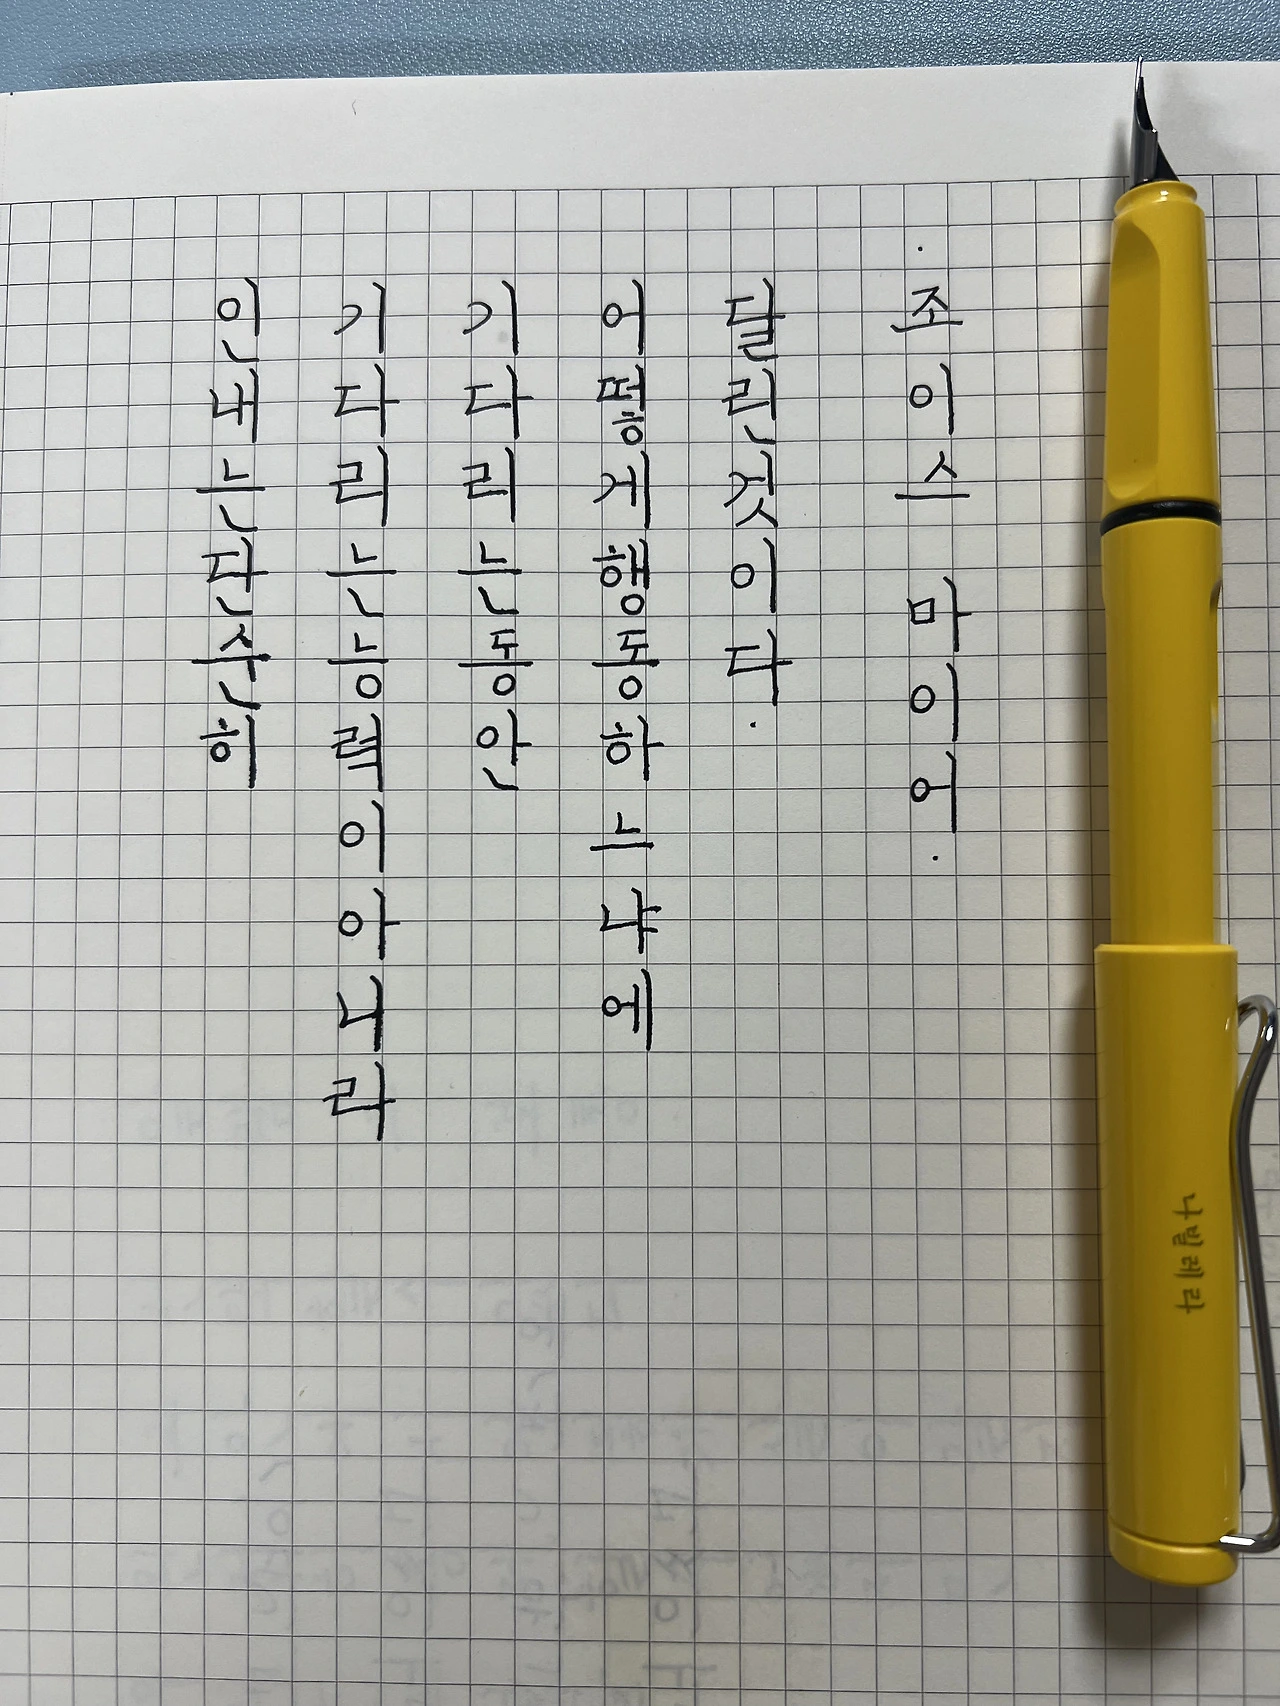 인내는단순히
기다리는능력이아니라
기다리는동안
어떻게행동하느냐에
달린것이다.
. 조이스 마이어.